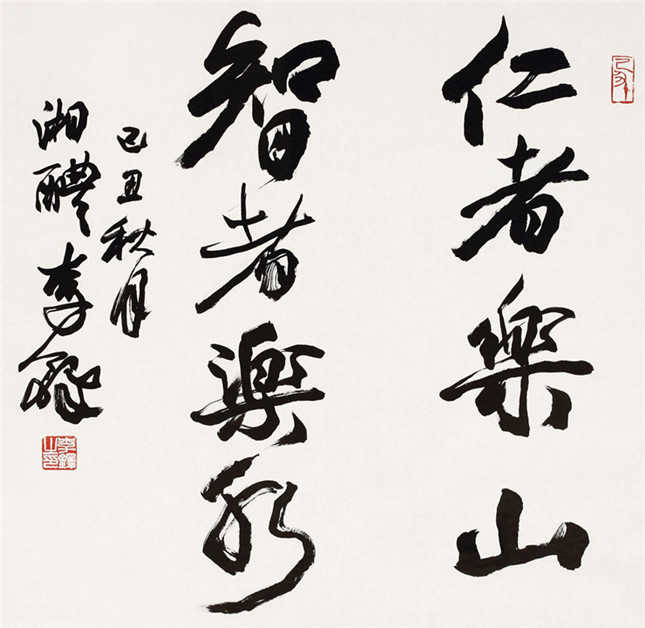 仁者樂山
智者樂水
己丑秋月
湘醴李鐸